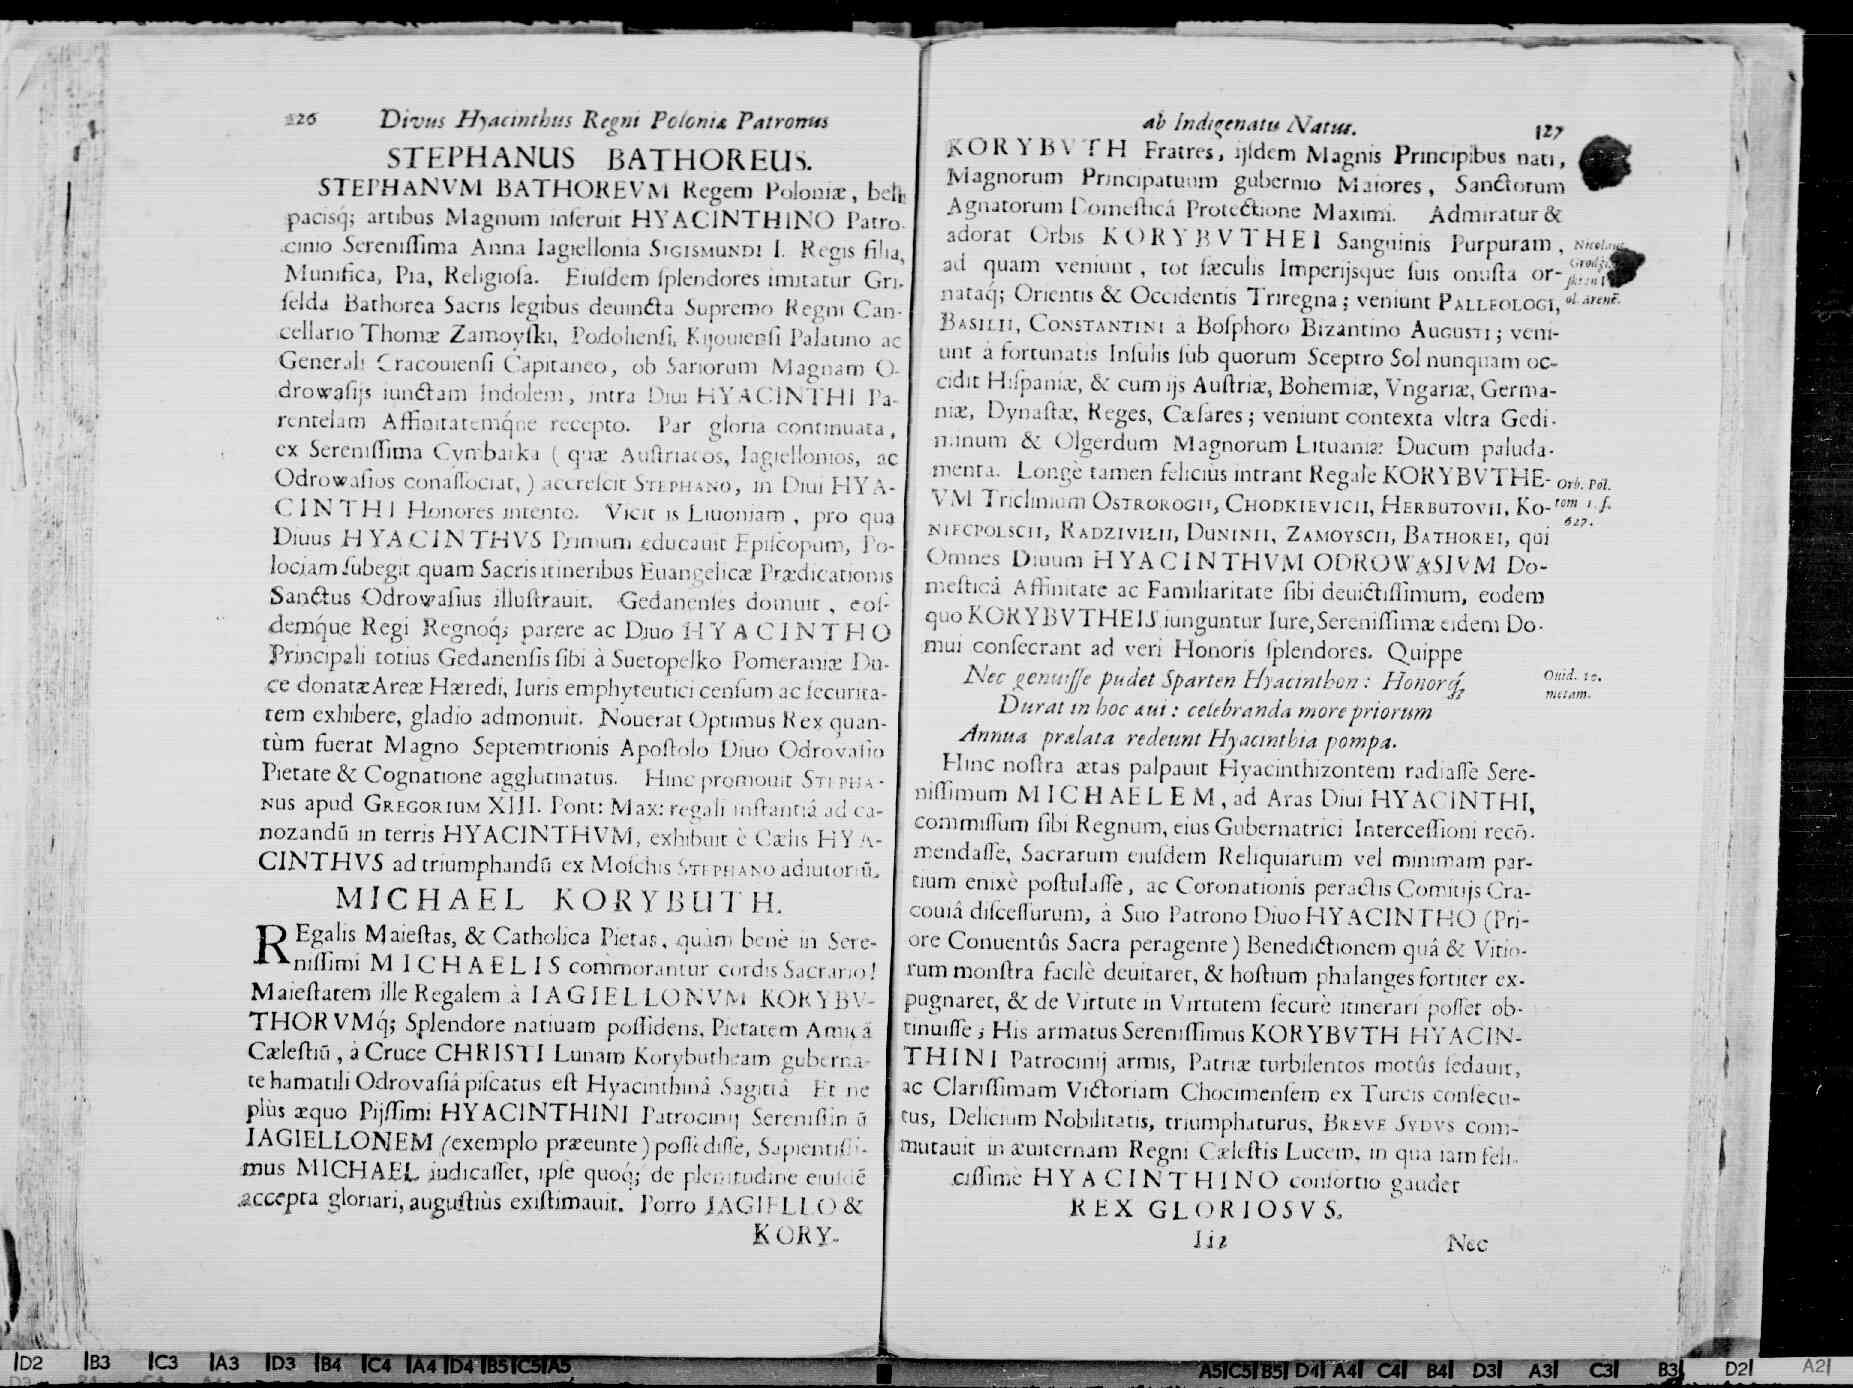 226 Divus Hyacinthus Regni Poloniæ Patronus
STEPHANUS BATHOREUS.
STEPHANVM BATHOREVM Regem Poloniæ, belli
pacisq́; artibus Magnum inſeruit HYACINTHINO Patro-
cinio Sereniſſima Anna Iagiellonia SIGISMUNDI I. Regis filia,
Munifica, Pia, Religioſa. Eiuſdem ſplendores imitatur Gri-
ſelda Bathorea Sacris legibus deuincta Supremo Regni Can-
cellario Thomæ Zamoyſki, Podolienſi, Kijouienſi Palatino ac
Generali Cracouienſi Capitaneo, ob Sariorum Magnam O-
drowaſijs iunctam Indolem, intra Diui HYACINTHI Pa-
rentelam Affinitatemq́ue recepto. Par gloria continuata,
ex Sereniſſima Cymbarka ( quæ Auſtriacos, Iagiellonios, ac
Odrowaſios conaſſociat, ) accreſcit STEPHANO, in Diui HYA-
CINTHI Honores intento. Vicit is Liuoniam, pro qua
Diuus HYACINTHVS Primum educauit Epiſcopum, Po-
lociam ſubegit quam Sacris itineribus Euangelicæ Prædicationis
Sanctus Odrowaſius illuſtrauit. Gedanenſes domuit, eoſ-
demq́ue Regi Regnoq́; parere ac Diuo HYACINTHO
Principali totius Gedanenſis ſibi à Suetopelko Pomeraniæ Du-
ce donatæ Areæ Hæredi, Iuris emphyteutici cenſum ac ſecurita-
tem exhibere, gladio admonuit. Nouerat Optimus Rex quan-
tùm fuerat Magno Septemtrionis Apoſtolo Diuo Odrovaſio
Pietate & Cognatione agglutinatus. Hinc promouit STEPHA-
NUS apud GREGORIUM XIII. Pont: Max: regali inſtantiâ ad ca-
nozandū in terris HYACINTHVM, exhibuit è Cælis HYA-
CINTHVS ad triumphandū ex Moſchis STEPHANO adiutoriū.
MICHAEL KORYBUTH.
REgalis Maieſtas, & Catholica Pietas, quàm benè in Sere-
niſſimi MICHAELIS commorantur cordis Sacrario!
Maieſtatem ille Regalem à IAGIELLONVM KORYBV-
THORVMq́; Splendore natiuam poſſidens, Pietatem Amicâ
Cæleſtiū, à Cruce CHRISTI Lunam Korybutheam guberna-
te hamatili Odrovaſiâ piſcatus eſt Hyacinthinâ Sagittâ Et ne
plùs æquo Pijſſimi HYACINTHINI Patrocinij Sereniſſimū
IAGIELLONEM (exemplo præeunte) poſſediſſe, Sapientiſſi-
mus MICHAEL iudicaſſet, ipſe quoq́; de plenitudine eiuſdē
accepta gloriari, auguſtiùs exiſtimauit. Porro IAGIELLO &
KORY-
ab Indigenatu Natus. 127
KORYBVTH Fratres, ijſdem Magnis Principibus nati,
Magnorum Principatuum gubernio Maiores, Sanctorum
Agnatorum Domeſticâ Protectione Maximi. Admiratur &
adorat Orbis KORYBVTHEI Sanguinis Purpuram,
ad quam veniunt, tot ſæculis Imperijsque ſuis onuſta or-
nataq́; Orientis & Occidentis Triregna; veniunt PALLEOLOGI,
BASILII, CONSTANTINI à Boſphoro Bizantino AUGUSTI; veni-
unt à fortunatis Inſulis ſub quorum Sceptro Sol nunquam oc-
cidit Hiſpaniæ, & cum ijs Auſtriæ, Bohemiæ, Vngariæ, Germa-
niæ, Dynaſtæ, Reges, Cæſares; veniunt contexta vltra Gedi-
minum & Olgerdum Magnorum Lituaniæ Ducum paluda-
menta. Longè tamen feliciùs intrant Regale KORYBVTHE-
VM Triclinium OSTROROGII, CHODKIEVICII, HERBUTOVII, KO-
NIECPOLSCII, RADZIVILII, DUNINII, ZAMOYSCII, BATHOREI, qui
Omnes Diuum HYACINTHVM ODROWASIVM Do-
meſticâ Affinitate ac Familiaritate ſibi deuictiſſimum, eodem
quo KORYBVTHEIS iunguntur Iure, Sereniſſimæ eidem Do-
mui conſecrant ad veri Honoris ſplendores. Quippe
Nec genuiſſe pudet Sparten Hyacinthon: Honorq́;
Durat in hoc æui: celebranda more priorum
Annua prælata redeunt Hyacinthia pompa.
Hinc noſtra ætas palpauit Hyacinthizontem radiaſſe Sere-
niſſimum MICHAELEM, ad Aras Diui HYACINTHI,
commiſſum ſibi Regnum, eius Gubernatrici Interceſſioni recō-
mendaſſe, Sacrarum eiuſdem Reliquiarum vel minimam par-
tium enixè poſtulaſſe, ac Coronationis peractis Comitijs Cra-
couiâ diſceſſurum, à Suo Patrono Diuo HYACINTHO (Pri-
ore Conuentûs Sacra peragente) Benedictionem quâ & Vitio-
rum monſtra facilè deuitaret, & hoſtium phalanges fortiter ex-
pugnaret, & de Virtute in Virtutem ſecurè itinerari poſſet ob-
tinuiſſe; His armatus Sereniſſimus KORYBVTH HYACIN-
THINI Patrocinij armis, Patriæ turbilentos motûs ſedauit,
ac Clariſſimam Victoriam Chocimenſem ex Turcis conſecu-
tus, Delicium Nobilitatis, triumphaturus, BREVE SYDVS com-
mutauit in æuiternam Regni Cæleſtis Lucem, in qua iam feli-
ciſſimè HYACINTHINO conſortio gaudet
REX GLORIOSVS.
Iii Nec
Nicolaus
ol. arenę.
Orb. Pol.
tom 1. f.
627.
Ouid. 10.
metam.
D2 B3 C3 A3 D3 B4 C4 A4 D4 B5 C5 A5
A5 C5 B5 D4 A4 C4 B4 D3 A3 C3 B3 D2 A2